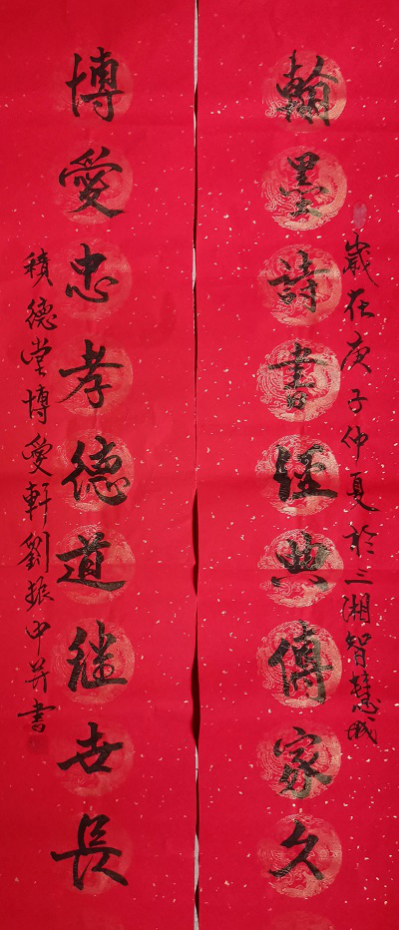 翰墨詩書經典傳家久
歲在庚子仲夏於三湘智慧城
博愛忠孝德道継世長
積德堂博愛軒劉振中并書